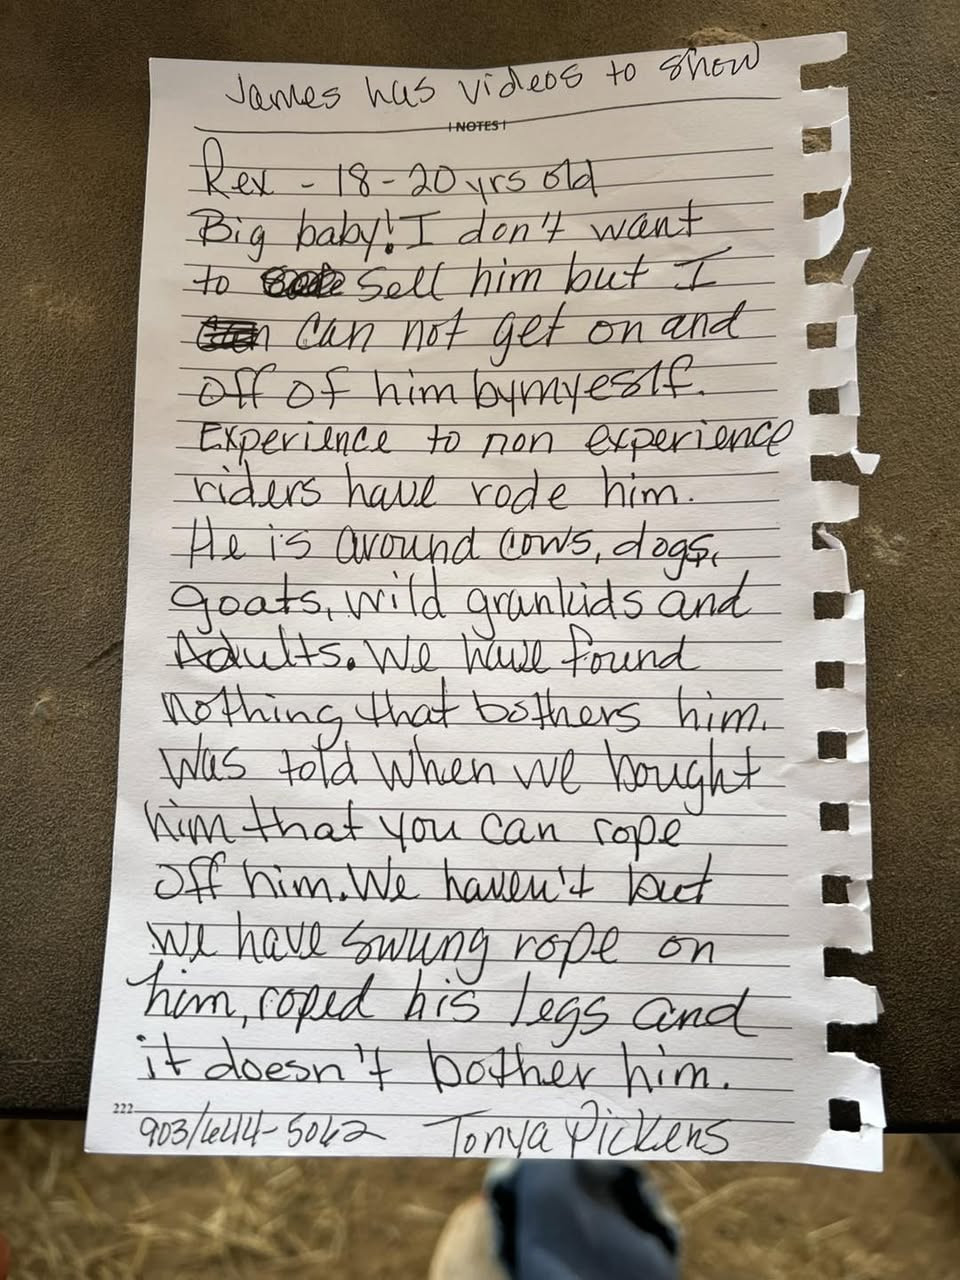 James has videos to show
NOTES
Rex - 18-20 yrs old
Big baby! I don't want
to sell him but I
can not get on and
off of him bymyeslf.
Experience to non experience
riders have rode him.
He is around cows, dogs,
goats, wild grankids and
Adults. We have found
nothing that bothers him.
Was told when we bought
him that you can rope
off him. We haven't but
we have swung rope on
him, roped his legs and
it doesn't bother him.
222
903/644-5062 Tonya Pickens